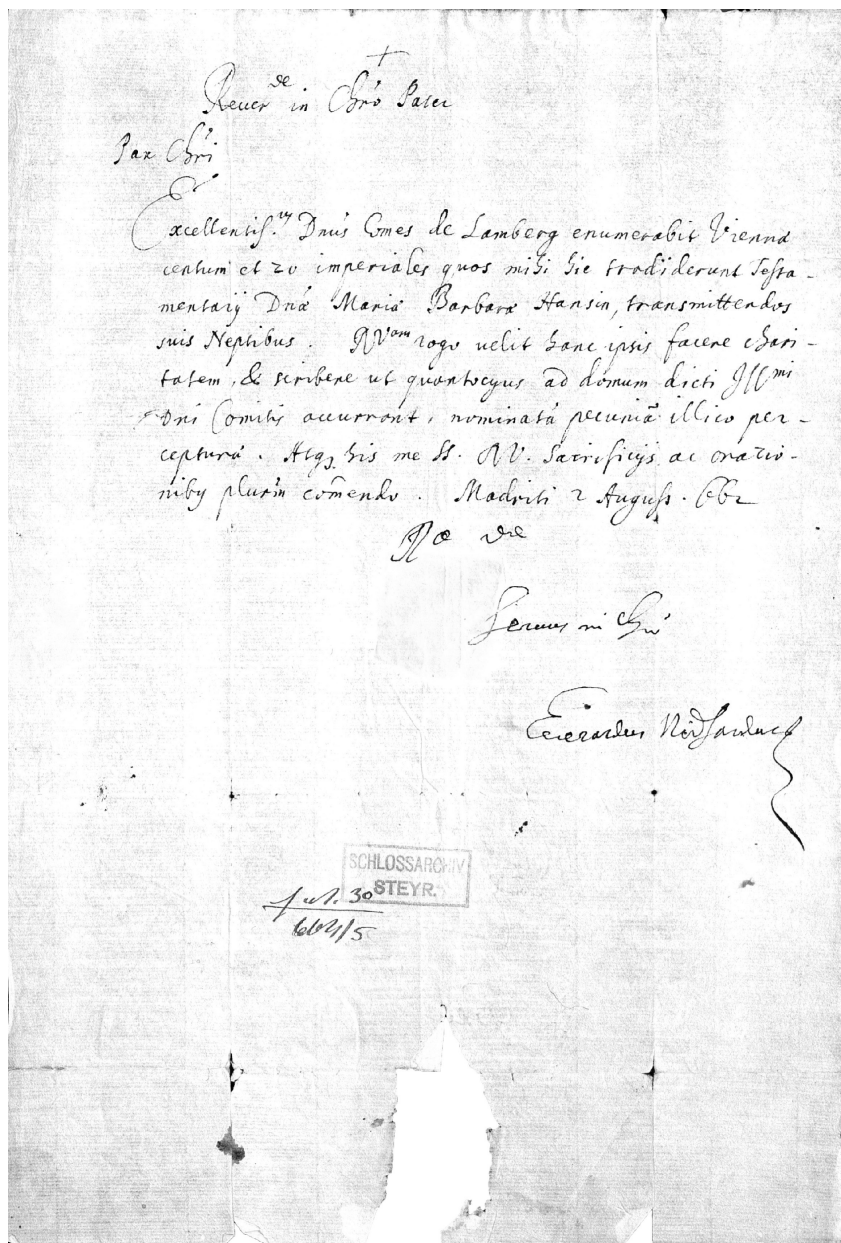 +
Reuer.de in Chro Pater
Pax Chri
Excellentis.us Dnus Comes de Lamberg enumerabit Viennæ
centum et 20 imperiales quos mihi hic tradiderunt Testa-
mentarij Dnæ Mariæ Barbaræ Hansin, transmittendos
suis Neptibus. RVam rogo uelit hanc ipsis facere chari-
tatem, & scribere ut quantocyus ad domum dicti Illmi
Dni Comitis accurrant, nominatã pecuniã illico per-
cepturæ. Atqʒ his me SS. RV. Sacrificijs ac oratio-
nibʒ plurim comendo. Madriti 2 August. 662
Ræ Væ
Seruus in Chro
Euerardus Nidhardus
SCHLOSSARCHIV
STEYR.
30